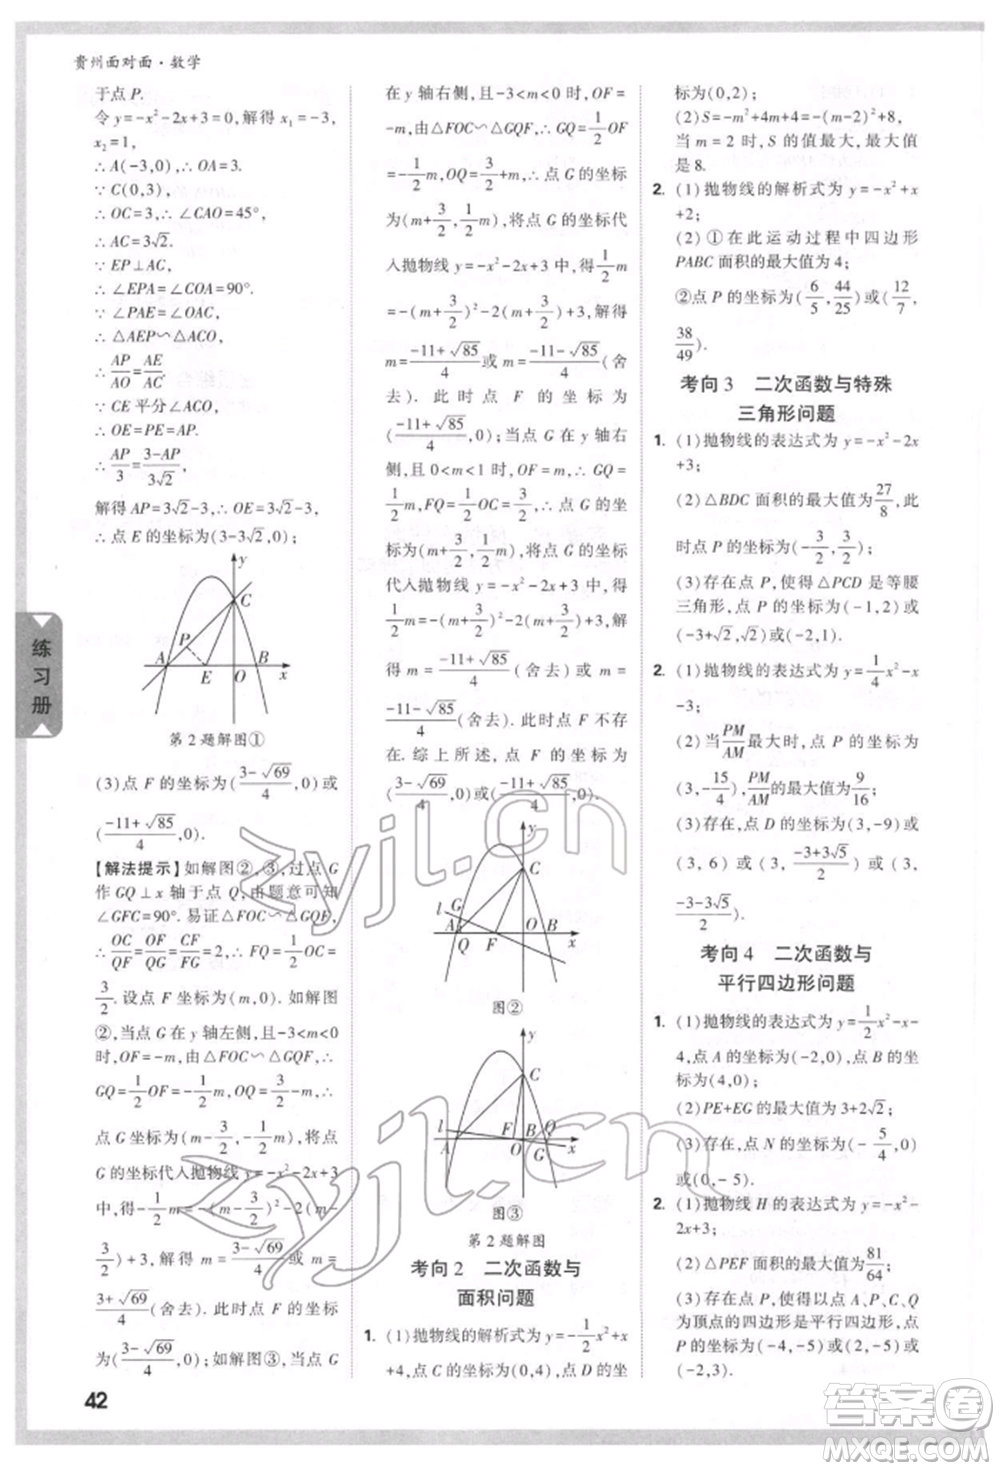 贵州面对面·数学
于点 P.
令 y=-x²-2x+3=0,解得 x₁=-3,
x₂=1,
∴ A(-3,0),∴ OA=3.
∵ C(0,3),
∴ OC=3,∴ ∠CAO=45°,
∴ AC=3√2.
∵ EP⊥AC,
∴ ∠EPA=∠COA=90°.
∵ ∠PAE=∠OAC,
∴ △AEP∽△ACO,
∴ AP/AO=AE/AC.
∵ CE 平分∠ACO,
∴ OE=PE=AC-AP,
∴ AP/3=(3-AP)/(3√2),
解得 AP=3√2-3,∴ OE=3√2-3,
∴ 点 E 的坐标为(3-3√2,0);
y
C
P
A
E
O
B
x
第 2 题解图①
(3)点 F 的坐标为((3-√69)/4,0)或
((-11+√85)/4,0).
【解法提示】如解图②,③,过点 G
作 GQ⊥x 轴于点 Q,由题意可知
∠GFC=90°. 易证△FOC∽△GQF,
∴ OC/QF=OF/GQ=CF/FG=2,∴ FQ=
3/2. 设点 F 坐标为(m,0). 如解图
②,当点 G 在 y 轴左侧,且-3<m<0
时,OF=-m,由△FOC∽△GQF,∴
GQ=1/2 OF=-1/2 m,OQ=3/2-m,∴
点 G 坐标为(m-3/2,-1/2 m),将点
G 的坐标代入抛物线 y=-x²-2x+3
中,得-1/2 m=-(m-3/2)²-2(m-
3/2)+3,解得 m=(3-√69)/4 或 m=
(3+√69)/4(舍去). 此时点 F 的坐标
为((3-√69)/4,0);如解图③,当点 G
42
练习册
在 y 轴右侧,且-3<m<0 时,OF=
-m,由△FOC∽△GQF,∴ GQ=1/2 OF
=-1/2 m,OQ=3/2+m,∴ 点 G 的坐标
为(m+3/2,1/2 m),将点 G 的坐标代
入抛物线 y=-x²-2x+3 中,得1/2 m
=-(m+3/2)²-2(m+3/2)+3,解得
m=(-11+√85)/4 或 m=(-11-√85)/4(舍
去). 此时点 F 的坐标为
((-11+√85)/4,0);当点 G 在 y 轴右
侧,且 0<m<1 时,∴ GQ=1/2 OF=
1/2 m,FQ=1/2 OC=3/2,∴ 点 G 的坐
标为(m+3/2,1/2 m),将点 G 的坐标
代入抛物线 y=-x²-2x+3 中,得
1/2 m=-(m+3/2)²-2(m+3/2)+3,解
得 m=(-11+√85)/4(舍去)或 m=
(-11-√85)/4(舍去). 此时点 F 不存
在. 综上所述,点 F 的坐标为
((3-√69)/4,0)或((-11+√85)/4,0).
y
C
l
G
A
Q
F
O
B
x
图②
y
C
l
A
F
O
B
Q
G
x
图③
第 2 题解图
考向 2 二次函数与
面积问题
1. (1)抛物线的解析式为 y=-1/2 x²+x
+4,点 C 的坐标为(0,4),点 D 的坐
标为(0,2);
(2)S=-m²+4m+4=-(m-2)²+8,
当 m=2 时,S 的值最大,最大值
是 8.
2. (1)抛物线的解析式为 y=-x²+x
+2;
(2)①在此运动过程中四边形
PABC 面积的最大值为 4;
②点 P 的坐标为(6/5,44/25)或(12/7,
38/49).
考向 3 二次函数与特殊
三角形问题
1. (1)抛物线的表达式为 y=-x²-2x
+3;
(2)△BDC 面积的最大值为27/8,此
时点 P 的坐标为(-3/2,3/2);
(3)存在点 P,使得△PCD 是等腰
三角形,点 P 的坐标为(-1,2)或
(-3+√2,√2)或(-2,1).
2. (1)抛物线的表达式为 y=1/4 x²-x
-3;
(2)当PM/AM最大时,点 P 的坐标为
(3,-15/4),PM/AM的最大值为9/16;
(3)存在,点 D 的坐标为(3,-9)或
(3,6)或(3,(-3+3√5)/2)或(3,
(-3-3√5)/2).
考向 4 二次函数与
平行四边形问题
1. (1)抛物线的表达式为 y=1/2 x²-x-
4,点 A 的坐标为(-2,0),点 B 的坐
标为(4,0);
(2)PE+EG 的最大值为 3+2√2;
(3)存在,点 N 的坐标为(-5/4,0)
或(0,-5).
2. (1)抛物线 H 的表达式为 y=-x²-
2x+3;
(2)△PEF 面积的最大值为81/64;
(3)存在点 P,使得以点 A、P、C、Q
为顶点的四边形是平行四边形,点
P 的坐标为(-4,-5)或(2,-5)或
(-2,3).
zyjl.cn
zyjl.cn
答案圈
MXQE.COM